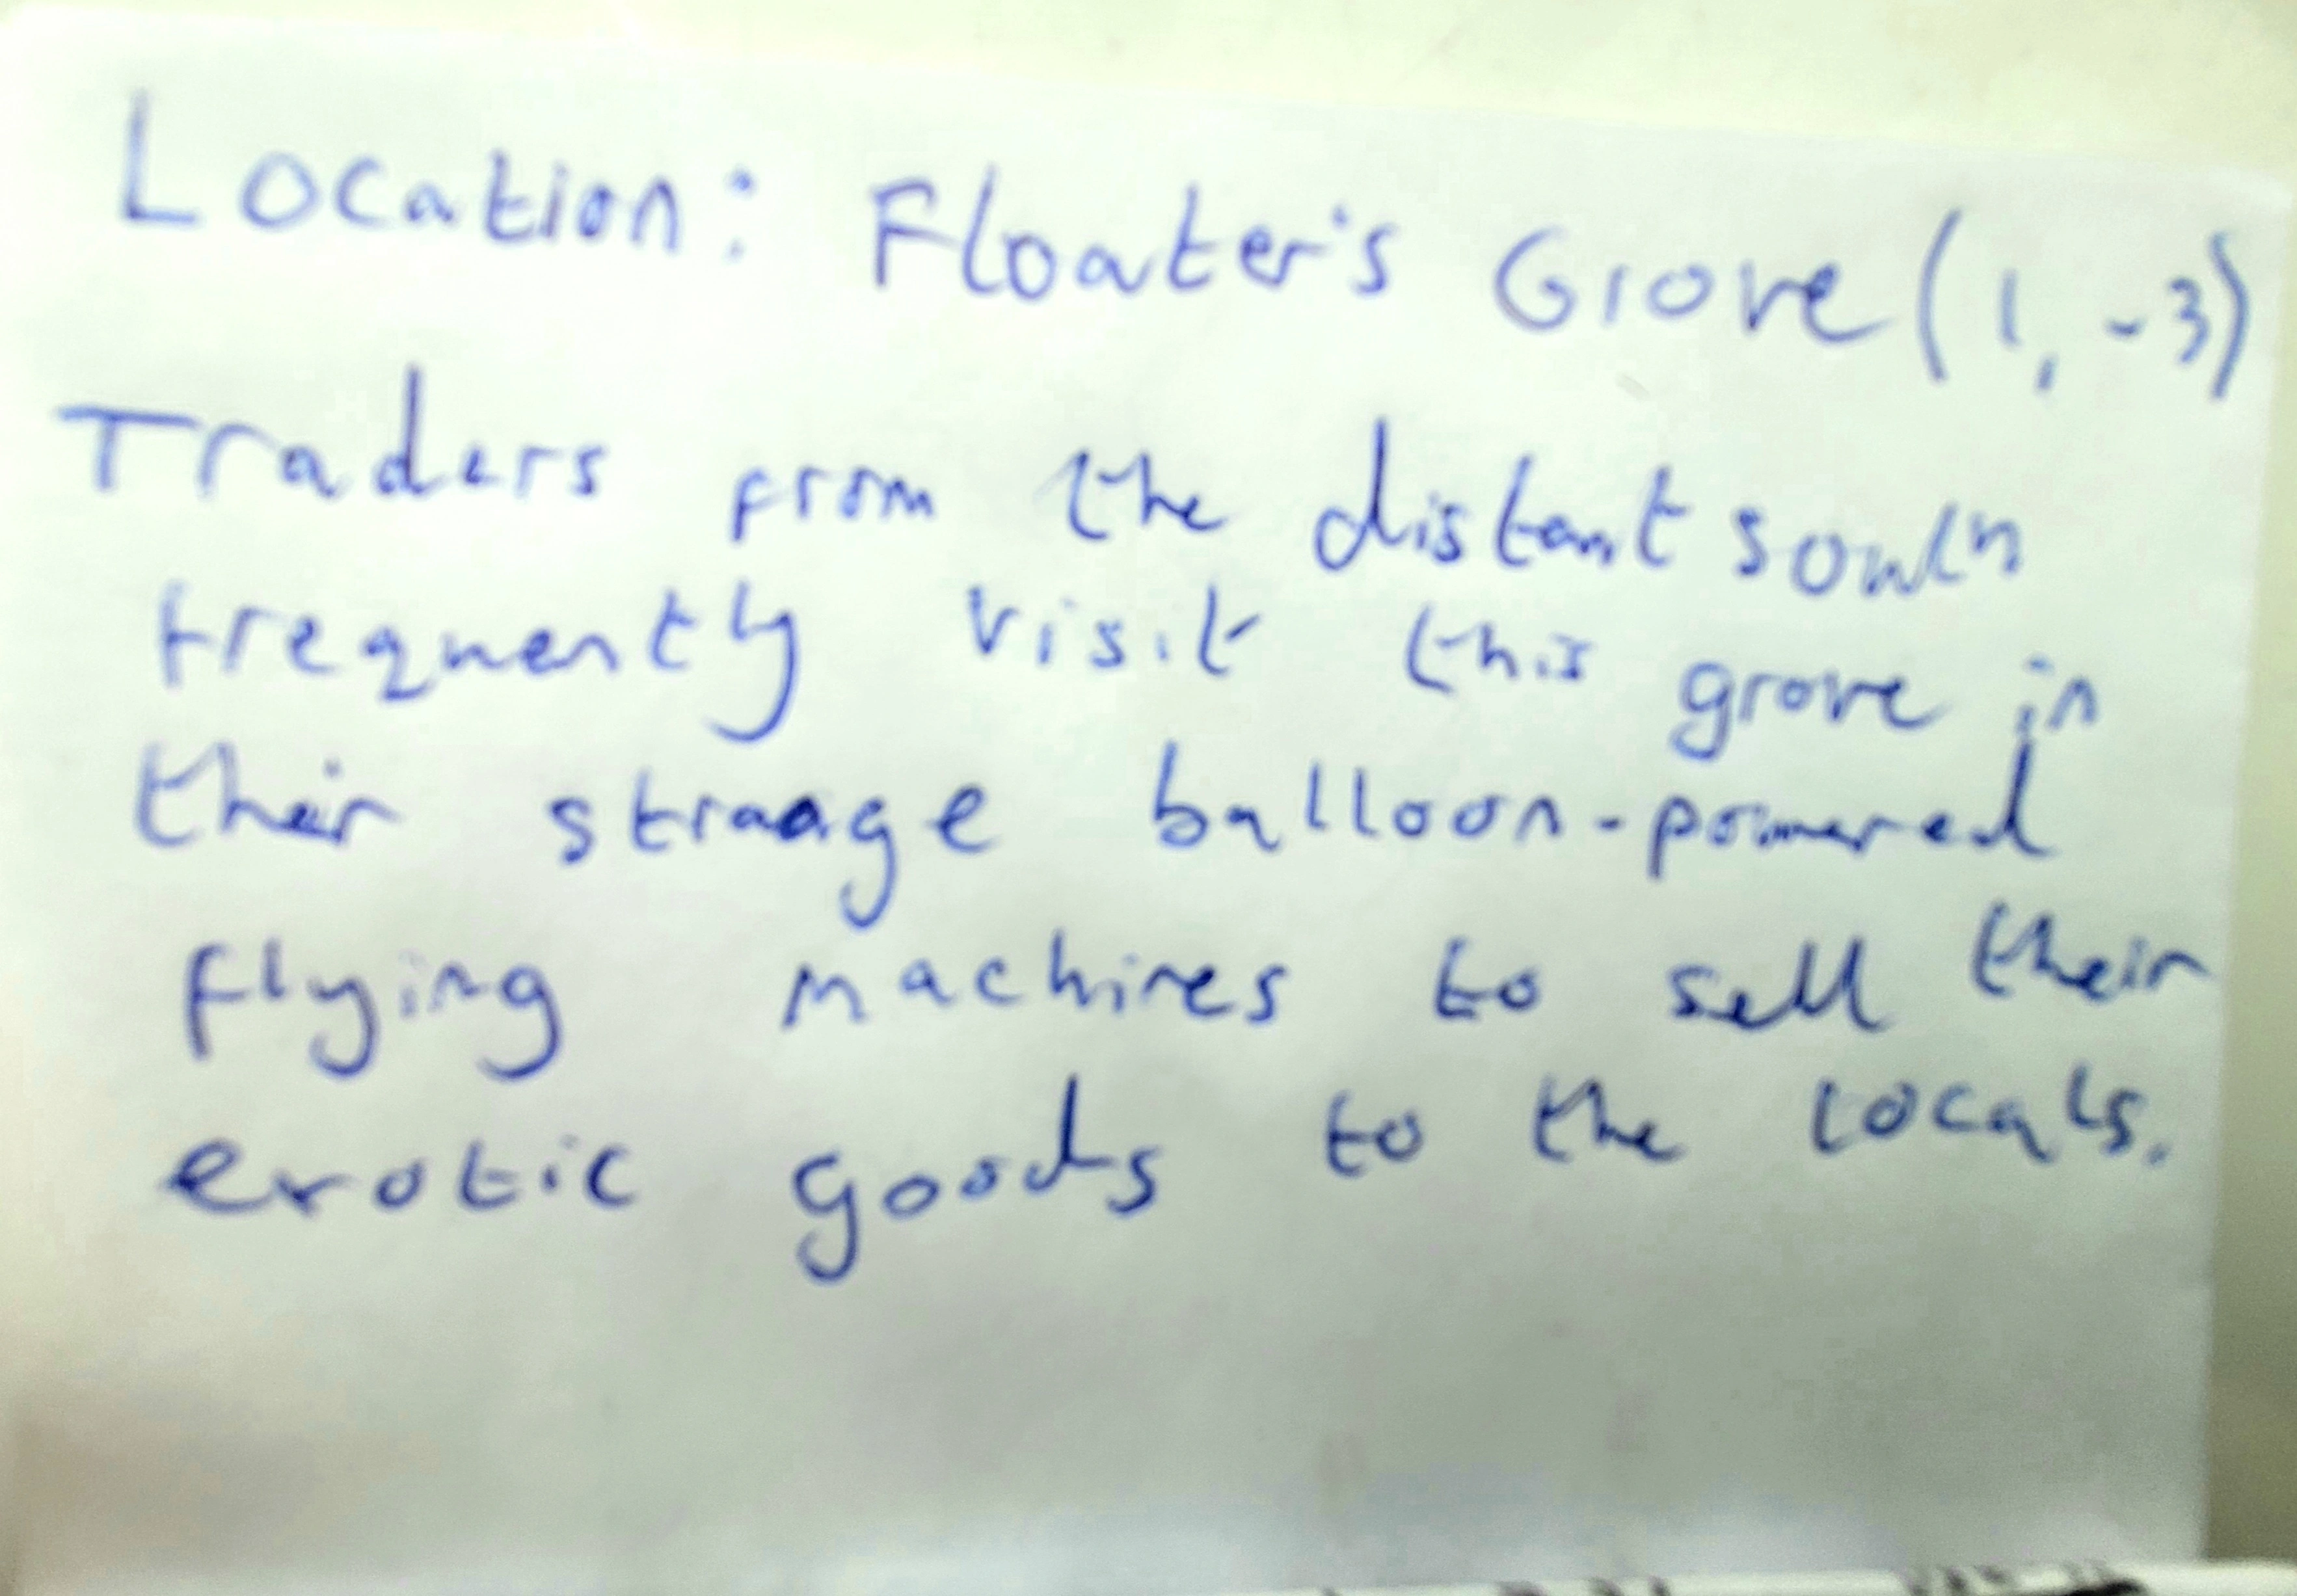 Location: Floater's Grove (1, -3)
Traders from the distant south
frequently visit this grove in
their strange balloon-powered
flying machines to sell their
exotic goods to the locals.